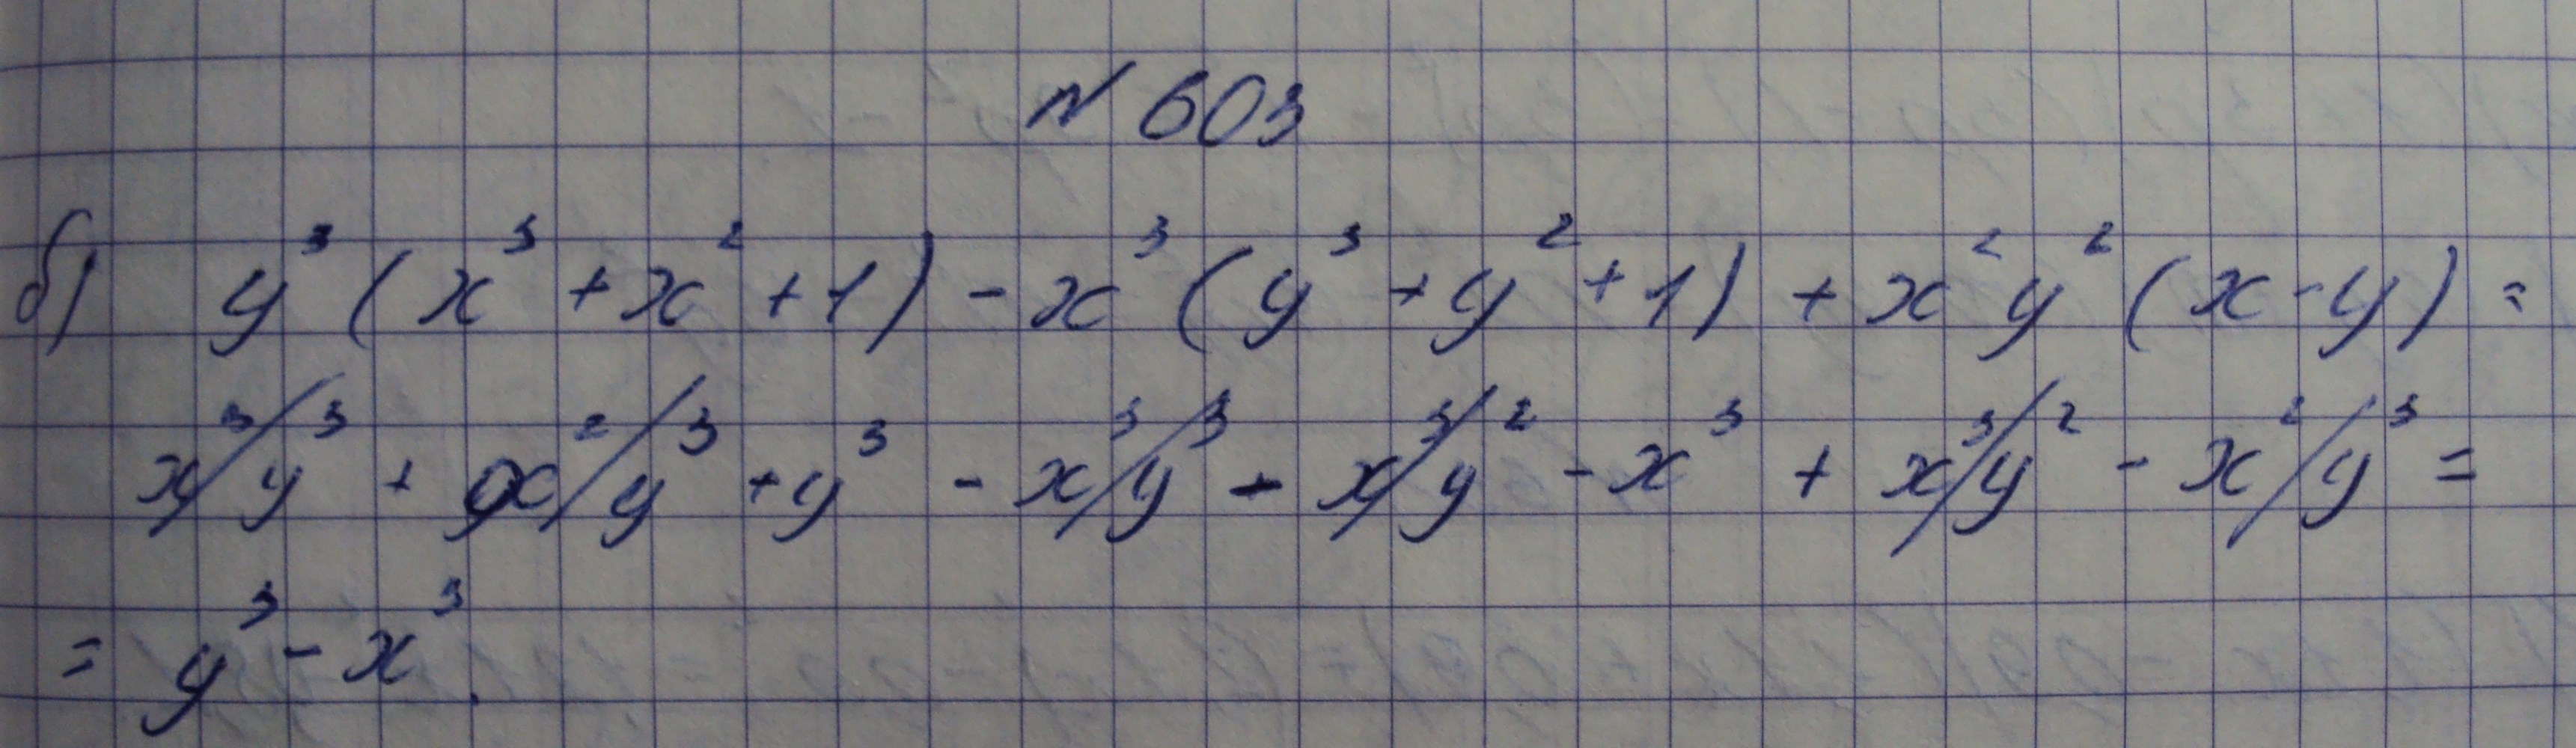 № 603
б) y³ (x³ + x² + 1) - x³ (y³ + y² + 1) + x² y² (x - y) =
x³y³ + x²y³ + y³ - x³y³ - x³y² - x³ + x³y² - x²y³ =
= y³ - x³.